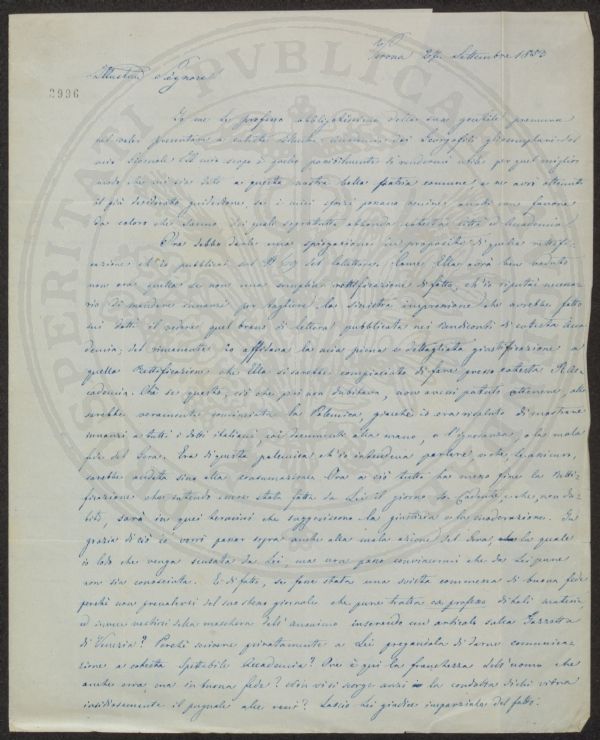 Verona 27 Settembre 1853
Illustre Signore!
2936
Io me le professo obbligatissimo della sua gentile premura
nel voler presentare a cotesta Accademia dei Georgofili gli esemplari del
mio Giornale. Il mio scopo è quello possibilmente di rendermi utile per quel miglior
modo che mi sia dato a questa nostra bella patria comune, e ne avrò ottenuto
il più desiderato, se i miei sforzi ponno venire
da coloro che sanno, dei quali sopratutto abbonda cotesta città e Accademia.
Ora debbo darle una spiegazione in proposito di quella rettifi-
cazione ch'io pubblicai nel N. del Collettore. Come Ella avrà ben veduto
non era quella se non una semplice rettificazione di fatto, ch'io riputai necessa-
rio di mandare innanzi per togliere la sinistra impressione che avrebbe fatto
sui dotti il vedere quel brano di lettera pubblicata nei rendiconti di cotesta Acca-
demia; del rimanente Io affidava la mia piena e dettagliata giustificazione a
quella Rettificazione che Ella si sarebbe compiaciuto di fare presso cotesta R. Ac-
cademia. Che se questo, ciò che però non dubitava, non avessi potuto ottenere, allo
sarebbe veramente cominciata la Polemica, giacchè io era risoluto di mostrare
innanzi a tutti i dotti italiani, coi documenti alla mano, o l'ignoranza, o la mala
fede del Sera. Era di questa polemica ch'io intendeva parlare, e che, le assicuro,
sarebbe andata sino alla consumazione. Ora a ciò tutto ha meno fine la Retti-
ficazione che intendo essere stata fatta da Lei il giorno che, non du-
bito, sarà in quei termini che suggeriscono la giustizia e la moderazione. In
grazia di ciò io vorrei passar sopra anche alla mala azione del la quale
io lodo che venga scusata da Lei, ma non posso convincermi che da Lei pure
non sia conosciuta. E di fatti, se fosse stata una svista commessa di buona fede
perchè non prevalersi del suo stesso giornale che pure tratta ex professo di tali materie,
ed invece vestirsi della maschera dell'anonimo inserendo un articolo sulla Gazzetta
di Venezia? Perchè scrivere privatamente a Lei pregandola di darne comunica-
zione a cotesta Spettabile Accademia? Ove è qui la franchezza dell'uomo che
anche erra, ma in buona fede? Non vi si scorge anzi la condotta di chi vibra
insidiosamente il pugnale alle reni? Lascio Lei giudice imparziale del fatto.